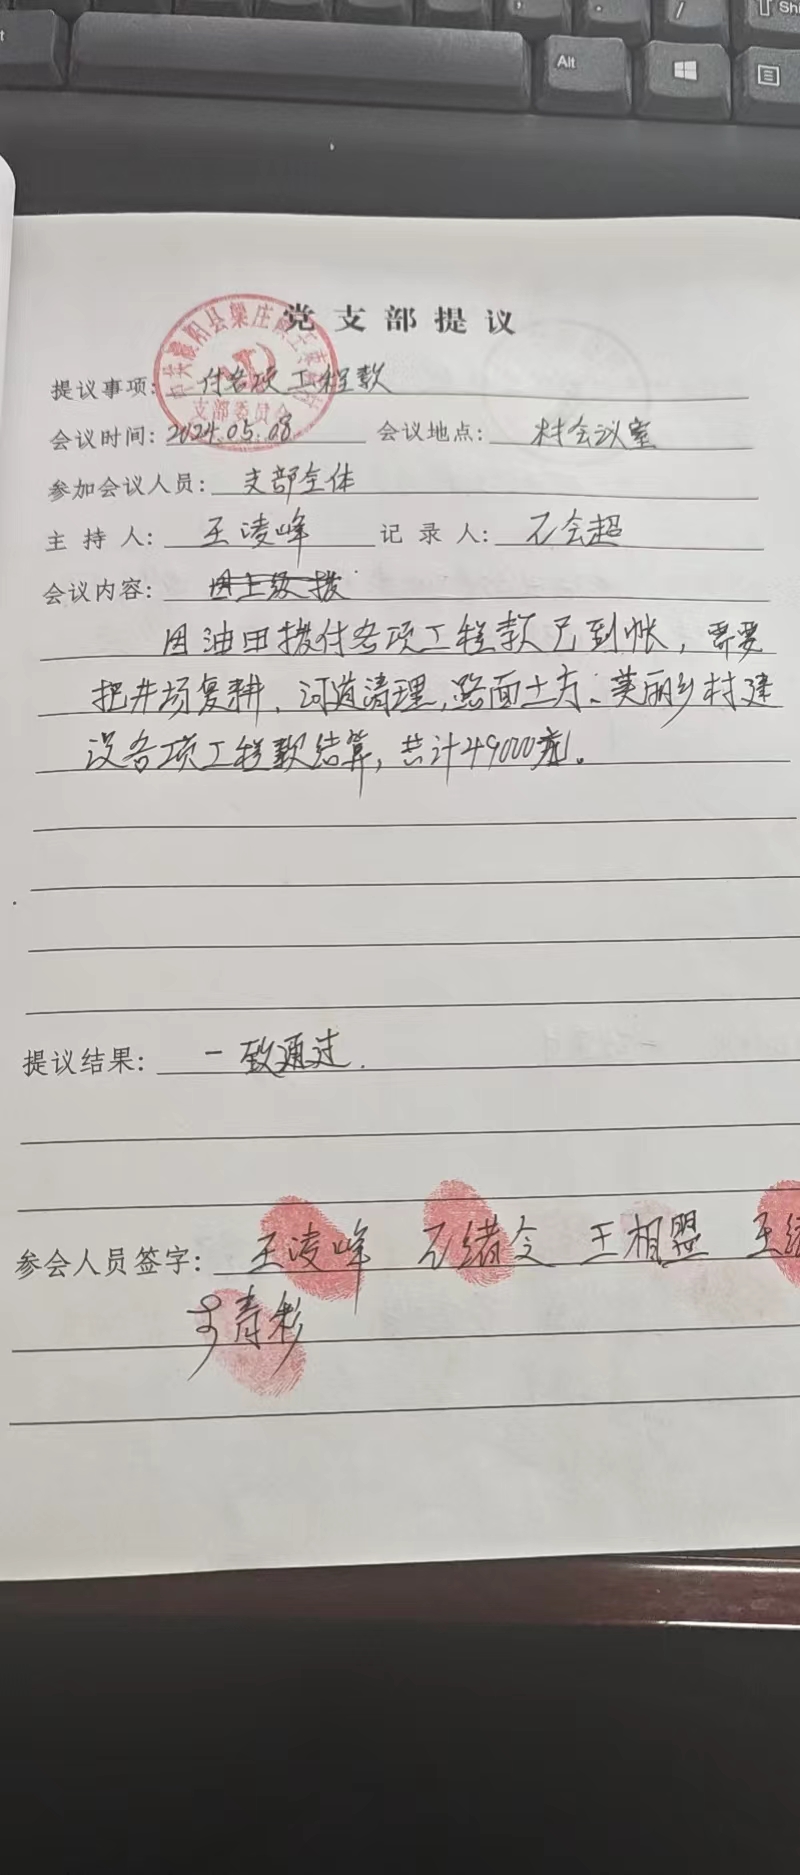 Alt
党支部提议
提议事项: 付各项工程款
会议时间: 2024.05.08 会议地点: 村会议室
参加会议人员: 支部全体
主持人: 王凌峰 记录人: 石会超
会议内容: 因上级拨
因油田拨付各项工程款已到帐,需要
把井场复耕、河道清理、路面土方、美丽乡村建
设各项工程款结算,共计49000元。
提议结果: 一致通过.
参会人员签字: 王凌峰 石绪令 王相盟 王绪
青彩
支部委员会